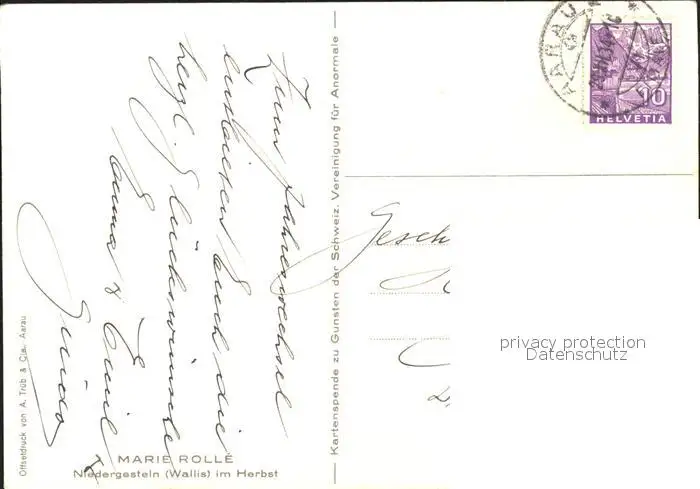 Zum Jahreswechsel
entbieten Euch die
herzl. Glückwünsche
Emma & Emil
Guido
MARIE ROLLÉ
Niedergesteln (Wallis) im Herbst
Offsetdruck von A. Trüb & Cie., Aarau
Kartenspende zu Gunsten der Schweiz. Vereinigung für Anormale
AARAU
10
HELVETIA
Gesch
privacy protection
Datenschutz